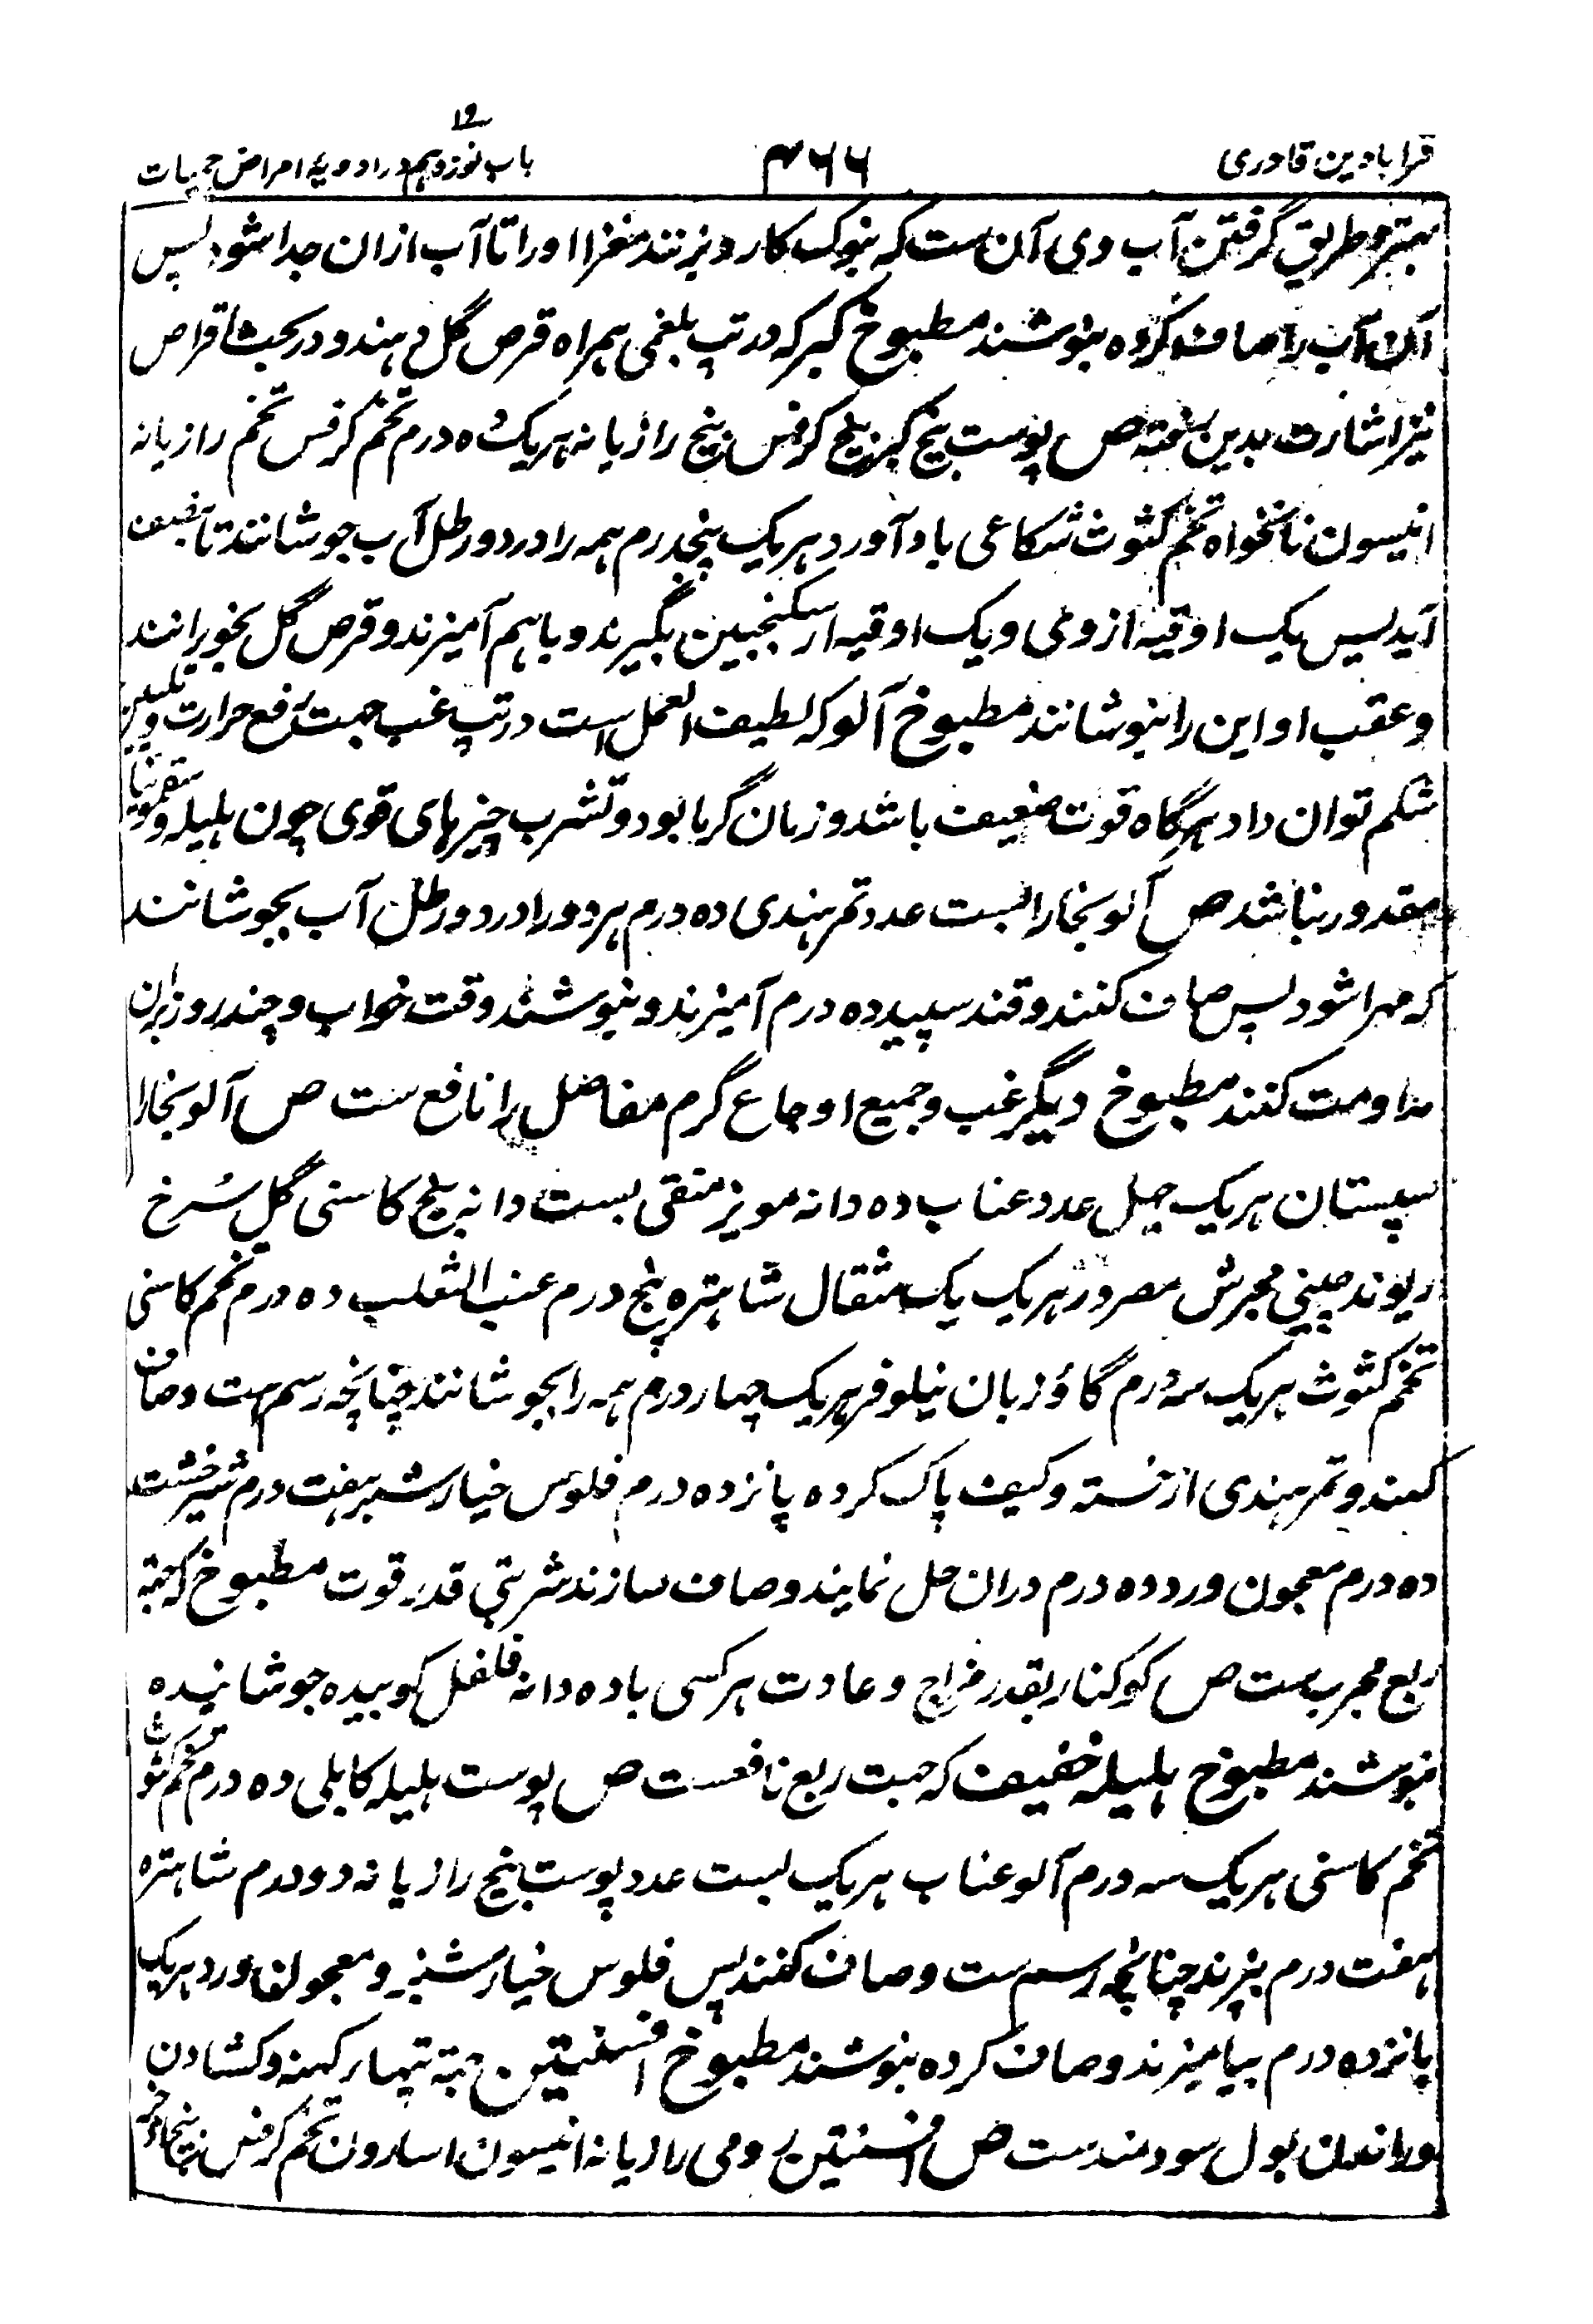 قرابادین قادری ۴۶۶ باب نوزدهم در ادویه امراض حمیات
۱۹
بهتر و طریق گرفتن آب وی آن ست که بنوک کارد بزنند مغزا او را تا آب ازان جدا شود پس
آن آب را صاف کرده بنوشند مطبوخ کبر که در تپ بلغمی همراه قرص گل دهند و در بحث اقراص
نیز اشارت بدین رفته ص پوست بیخ کبر بیخ کرفس بیخ رازیانه هریک ده درم تخم کرفس تخم رازیانه
انیسون نانخواه تخم کثوث شکاعی بادآورد هریک پنجدرم همه را در دو رطل آب جوشانند تا بنصف
آید پس یک اوقیه از وی و یک اوقیه از سکنجبین بگیرند و باهم آمیزند و قرص گل بخورانند
و عقب او این را بنوشانند مطبوخ آلو که لطیف العمل است در تپ غب جهت رفع حرارت و تلیین
شکم توان داد هرگاه قوت ضعیف باشد و زمان گرما بود و تشرب چیزهای قوی چون هلیله و سقمونیا
مقدور نباشد ص آلوبخارا بست عدد تمرهندی ده درم هردو را در دو رطل آب بجوشانند
که مهرا شود پس صاف کنند و قند سپید ده درم آمیزند و بنوشند وقت خواب و چند روز بران
مداومت کنند مطبوخ دیگر غب و جمیع اوجاع گرم مفاصل را نافع ست ص آلوبخارا
سپستان هریک چهل عدد عناب ده دانه مویز منقی بست دانه بیخ کاسنی گل سُرخ
ریوند چینی مجرش مصرور هریک یک مثقال شاهتره پنج درم عنب الثعلب ده درم تخم کاسنی
تخم کثوث هریک سه درم گاؤزبان نیلوفر هریک چهار درم همه را بجوشانند چنانچه رسم ست و صاف
کنند و تمرهندی از خسته و کیف پاک کرده پانزده درم فلوس خیارشنبر هفت درم شیرخشت
ده درم معجون ورد ده درم دران حل نمایند و صاف سازند شربتی قدر قوت مطبوخ که جهة
ربع مجرب ست ص کوکنار بقدر مزاج و عادت هر کسی با ده دانه فلفل کوبیده جوشانیده
بنوشند مطبوخ هلیله خفیف که جهت ربع نافعست ص پوست هلیله کابلی ده درم تخم کثوث
تخم کاسنی هریک سه درم آلو عناب هریک بست عدد پوست بیخ رازیانه دو درم شاهتره
هفت درم بپزند چنانچه رسم ست و صاف کنند پس فلوس خیارشنبر و معجون ورد هریک
پانزده درم بیامیزند و صاف کرده بنوشند مطبوخ افسنتین جهة تپهای کهنه و کشادن
و راندن بول سودمندست ص افسنتین رومی رازیانه انیسون اسارون تخم کرفس